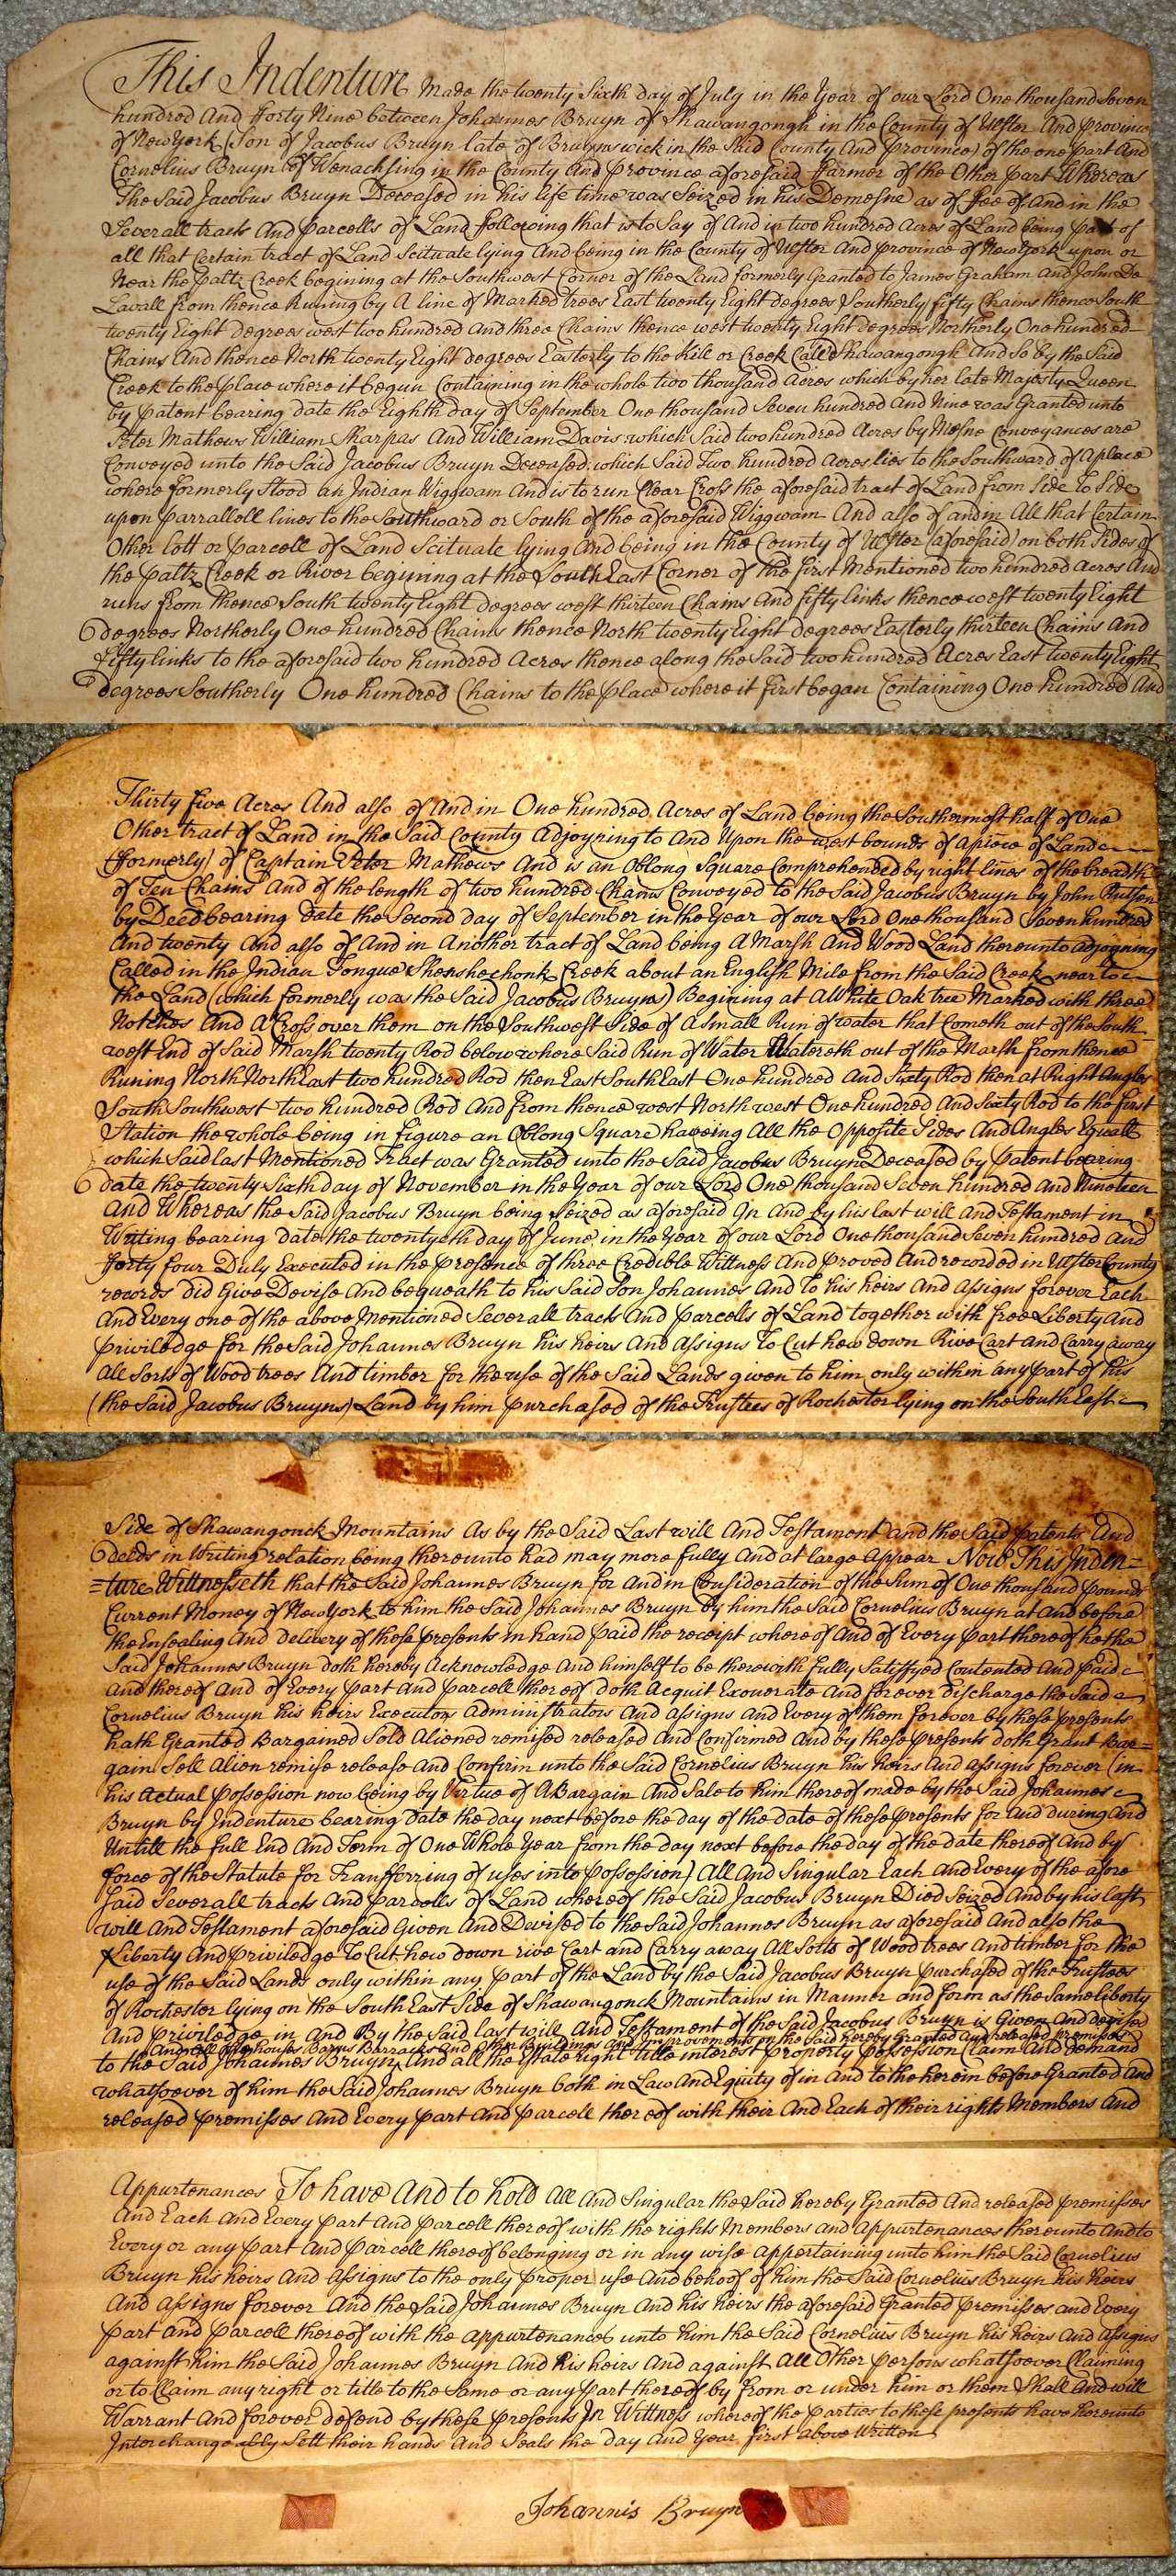 This Indenture Made the twenty Sixth day of July in the Year of our Lord One thousand Seven
hundred And fforty Nine between Johannes Bruyn of Shawangongh in the County of Ulster And province
of New York (Son of Jacobus Bruyn late of Bruynswick in the Said County And province) of the one part And
Cornelius Bruyn of Wenachsing in the County And province aforesaid ffarmer of the Other part Whereas
The Said Jacobus Bruyn Deceased in his life time was Seized in his Demesne as of ffee of and in the
Severall tracts And parcells of Land ffollowing that is to Say of And in two hundred Acres of Land being part of
all that Certain tract of Land Scituate lying And being in the County of Ulster And province of New York upon or
Near the paltz Creek begining at the Southwest Corner of the Land formerly Granted to James Graham and John De
Lavall from thence Runing by A line of Marked trees East twenty Eight degrees Southerly fifty Chains thence South
twenty Eight degrees west two hundred and three Chains thence west twenty Eight degrees Northerly One hundred
Chains And thence North twenty Eight degrees Easterly to the Kill or Creek Called Shawangongh And So by the Said
Creek to the place where it begun Containing in the whole two thousand Acres which by her late Majesty Queen
by patent bearing date the Eighth day of September One thousand Seven hundred And Nine was Granted unto
Peter Mathews William Sharpas And William Davis which Said two hundred Acres by Mesne Conveyances are
Conveyed unto the Said Jacobus Bruyn Deceased: which Said Two hundred Acres lies to the Southward of A place
where formerly Stood an Indian Wiggwam And is to run Clear Cross the aforesaid tract of Land from Side To Side
upon parralloll lines to the Southward or South of the aforesaid Wiggwam And also of and in All that Certain
Other lott or parcell of Land Scituate lying And being in the County of Ulster (aforesaid) on both Sides of
the paltz Creek or River begining at the South East Corner of the first Mentioned two hundred Acres And
runs from thence South twenty Eight degrees west thirteen Chains And fifty links thence west twenty Eight
degrees Northerly One hundred Chains thence North twenty Eight degrees Easterly thirteen Chains And
fifty links to the aforesaid two hundred Acres thence along the Said two hundred Acres East twenty Eight
degrees Southerly One hundred Chains to the place where it first began Containing One hundred And
Thirty five Acres And also of And in One hundred Acres of Land being the Southermost half of One
Other tract of Land in the Said County Adjoyning to And Upon the west bounds of A piece of Land
(fformerly) of Captain Peter Mathews And is an Oblong Square Comprehended by right lines of the breadth
of Ten Chains And of the length of two hundred Chains Conveyed to the Said Jacobus Bruyn by John Rutsen
by Deed bearing Date the Second day of September in the Year of our Lord One thousand Seven hundred
And twenty And also of And in Another tract of Land being A Marsh And Wood Land thereunto adjoyning
Called in the Indian Tongue Shenshechonk Creek about an English Mile from the Said Creek near to
the Land (which formerly was the Said Jacobus Bruyns) Begining at A White Oak tree Marked with three
Notches And A Cross over them on the Southwest Side of A Small Run of water that Cometh out of the South
west End of Said Marsh twenty Rod below where Said Run of Water Watereth out of the Marsh from thence
Runing North North East two hundred Rod then East South East One hundred And Sixty Rod then at Right Angles
South Southwest two hundred Rod And from thence west North west One hundred And Sixty Rod to the first
Station the whole being in figure an Oblong Square haveing All the Opposite Sides And Angles Equall
which Said last Mentioned Tract was Granted unto the Said Jacobus Bruyn Deceased by patent bearing
date the twenty Sixth day of November in the Year of our Lord One thousand Seven hundred And Nineteen
And Whereas the Said Jacobus Bruyn being Seized as aforesaid In And by his last will And Testament in
Writing bearing date the twentyeth day of June in the Year of our Lord One thousand Seven hundred And
fforty four Duly Executed in the presence of three Credible Wittness And proved And recorded in Ulster County
records did Give Devise And bequeath to his Said Son Johannes And To his heirs And Assigns forever Each
And Every one of the above Mentioned Severall tracts And parcells of Land together with free Liberty And
priviledge for the Said Johannes Bruyn his heirs And Assigns To Cut hew down Rive Cart And Carry away
All Sorts of Wood trees And timber for the use of the Said Lands given to him only within any part of his
(the Said Jacobus Bruyns) Land by him purchased of the Trustees of Rochester lying on the South East
Side of Shawangonck Mountains As by the Said Last will And Testament and the Said patents And
deeds in Writing relation being thereunto had may more fully And at large Appear Now This Inden=
=ture Wittnesseth that the Said Johannes Bruyn for And in Consideration of the Sum of One thousand pounds
Current Money of New York to him the Said Johannes Bruyn by him the Said Cornelius Bruyn at And before
the Ensealing And delivery of these presents in hand paid the receipt where of And of Every part thereof he the
Said Johannes Bruyn doth hereby Acknowledge And himself to be therewith fully Satisfyed Contented And paid
And thereof And of Every part And parcell thereof doth Acquit Exonerate And forever discharge the Said
Cornelius Bruyn his heirs Executors Administrators And Assigns And Every of them forever by these presents
hath Granted Bargained Sold Aliened remised released And Confirmed And by these presents doth Grant Bar=
gain Sell Alien remise release And Confirm unto the Said Cornelius Bruyn his heirs And Assigns forever (in
his Actual possession now being by Virtue of A Bargain And Sale to him thereof made by the Said Johannes
Bruyn by Indenture bearing Date the day next before the day of the date of these presents for And during And
Untill the full End And Term of One Whole Year from the day next before the day of the date thereof And by
force of the Statute for Transfferring of uses into possession) All And Singular Each And Every of the afore
Said Severall tracts And parcells of Land whereof the Said Jacobus Bruyn Died Seized And by his last
will And Testament aforesaid Given And Devised to the Said Johannes Bruyn as aforesaid And also the
Liberty And priviledge To Cut hew down rive Cart and Carry away All Sorts of Wood trees And timber for the
use of the Said Lands only within any part of the Land by the Said Jacobus Bruyn purchased of the Trustees
of Rochester lying on the South East Side of Shawangonck Mountains in Manner and form as the Same liberty
And priviledge in And By the Said last will And Testament of the Said Jacobus Bruyn is Given And devised
And all houses Barns Barracks And Other Buildings And Improvements on the Said hereby Granted And released premises
to the Said Johannes Bruyn And all the Estate right title interest property possession Claim And demand
whatsoever of him the Said Johannes Bruyn both in Law And Equity of in And to the herein before Granted And
released premisses And Every part And parcell thereof with their And Each of their rights Members And
Appurtenances To have And to hold All And Singular the Said hereby Granted And released premisses
And Each And Every part And parcell thereof with the rights Members and Appurtenances thereunto And to
Every or any part And parcell thereof belonging or in any wise appertaining unto him the Said Cornelius
Bruyn his heirs And Assigns to the only proper use And behoof of him the Said Cornelius Bruyn his heirs
And assigns forever And the Said Johannes Bruyn And his heirs the aforesaid Granted premisses and Every
part and parcell thereof with the appurtenances unto him the Said Cornelius Bruyn his heirs And assigns
against him the Said Johannes Bruyn And his heirs And against All Other persons whatsoever Claiming
or to Claim any right or title to the Same or any part thereof by from or under him or them Shall And will
Warrant And forever defend by these presents In Wittness whereof the parties to these presents have hereunto
Interchangeably Sett their hands And Seals the day And Year first above Written
Johannis Bruyn